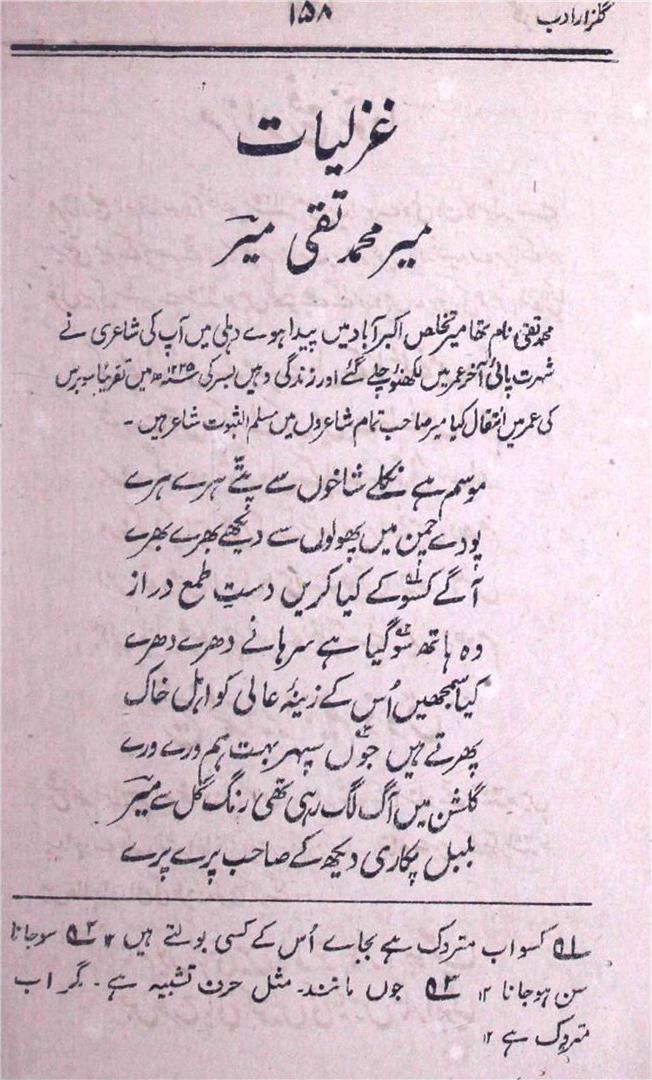 گلزار ادب
۱۵۸
غزلیات
میر محمد تقی میرؔ
محمد تقی نام تھا میر تخلص اکبر آباد میں پیدا ہوے دہلی میں آپ کی شاعری نے
شہرت پائی آخر عمر میں لکھنؤ چلے گئے اور زندگی وہیں بسر کی ۱۲۲۵ھ میں تقریباً سو برس
کی عمر میں انتقال کیا میر صاحب تمام شاعروں میں مسلم الثبوت شاعر ہیں ۔
موسم ہے نکلے شاخوں سے پتّے ہرے ہرے
پودے چمن میں پھولوں سے دیکھے بھرے بھرے
آگے کسو۱ کے کیا کریں دستِ طمع دراز
وہ ہاتھ سو۲ گیا ہے سرہانے دھرے دھرے
کیا سمجھیں اُس کے زینۂ عالی کو اہل خاک
پھرتے ہیں جوں۳ سپہر بہت ہم ورے ورے
گلشن میں آگ لگ رہی تھی رنگ گل سے میرؔ
بلبل پکاری دیکھ کے صاحب پرے پرے
۱ کسو اب متروک ہے بجاے اُس کے کسی بولتے ہیں ۱۲ ۲ سوجانا
سن ہوجانا ۱۲ ۳ جوں مانند۔ مثل حرف تشبیہ ہے ۔ مگر اب
متروک ہے ۱۲